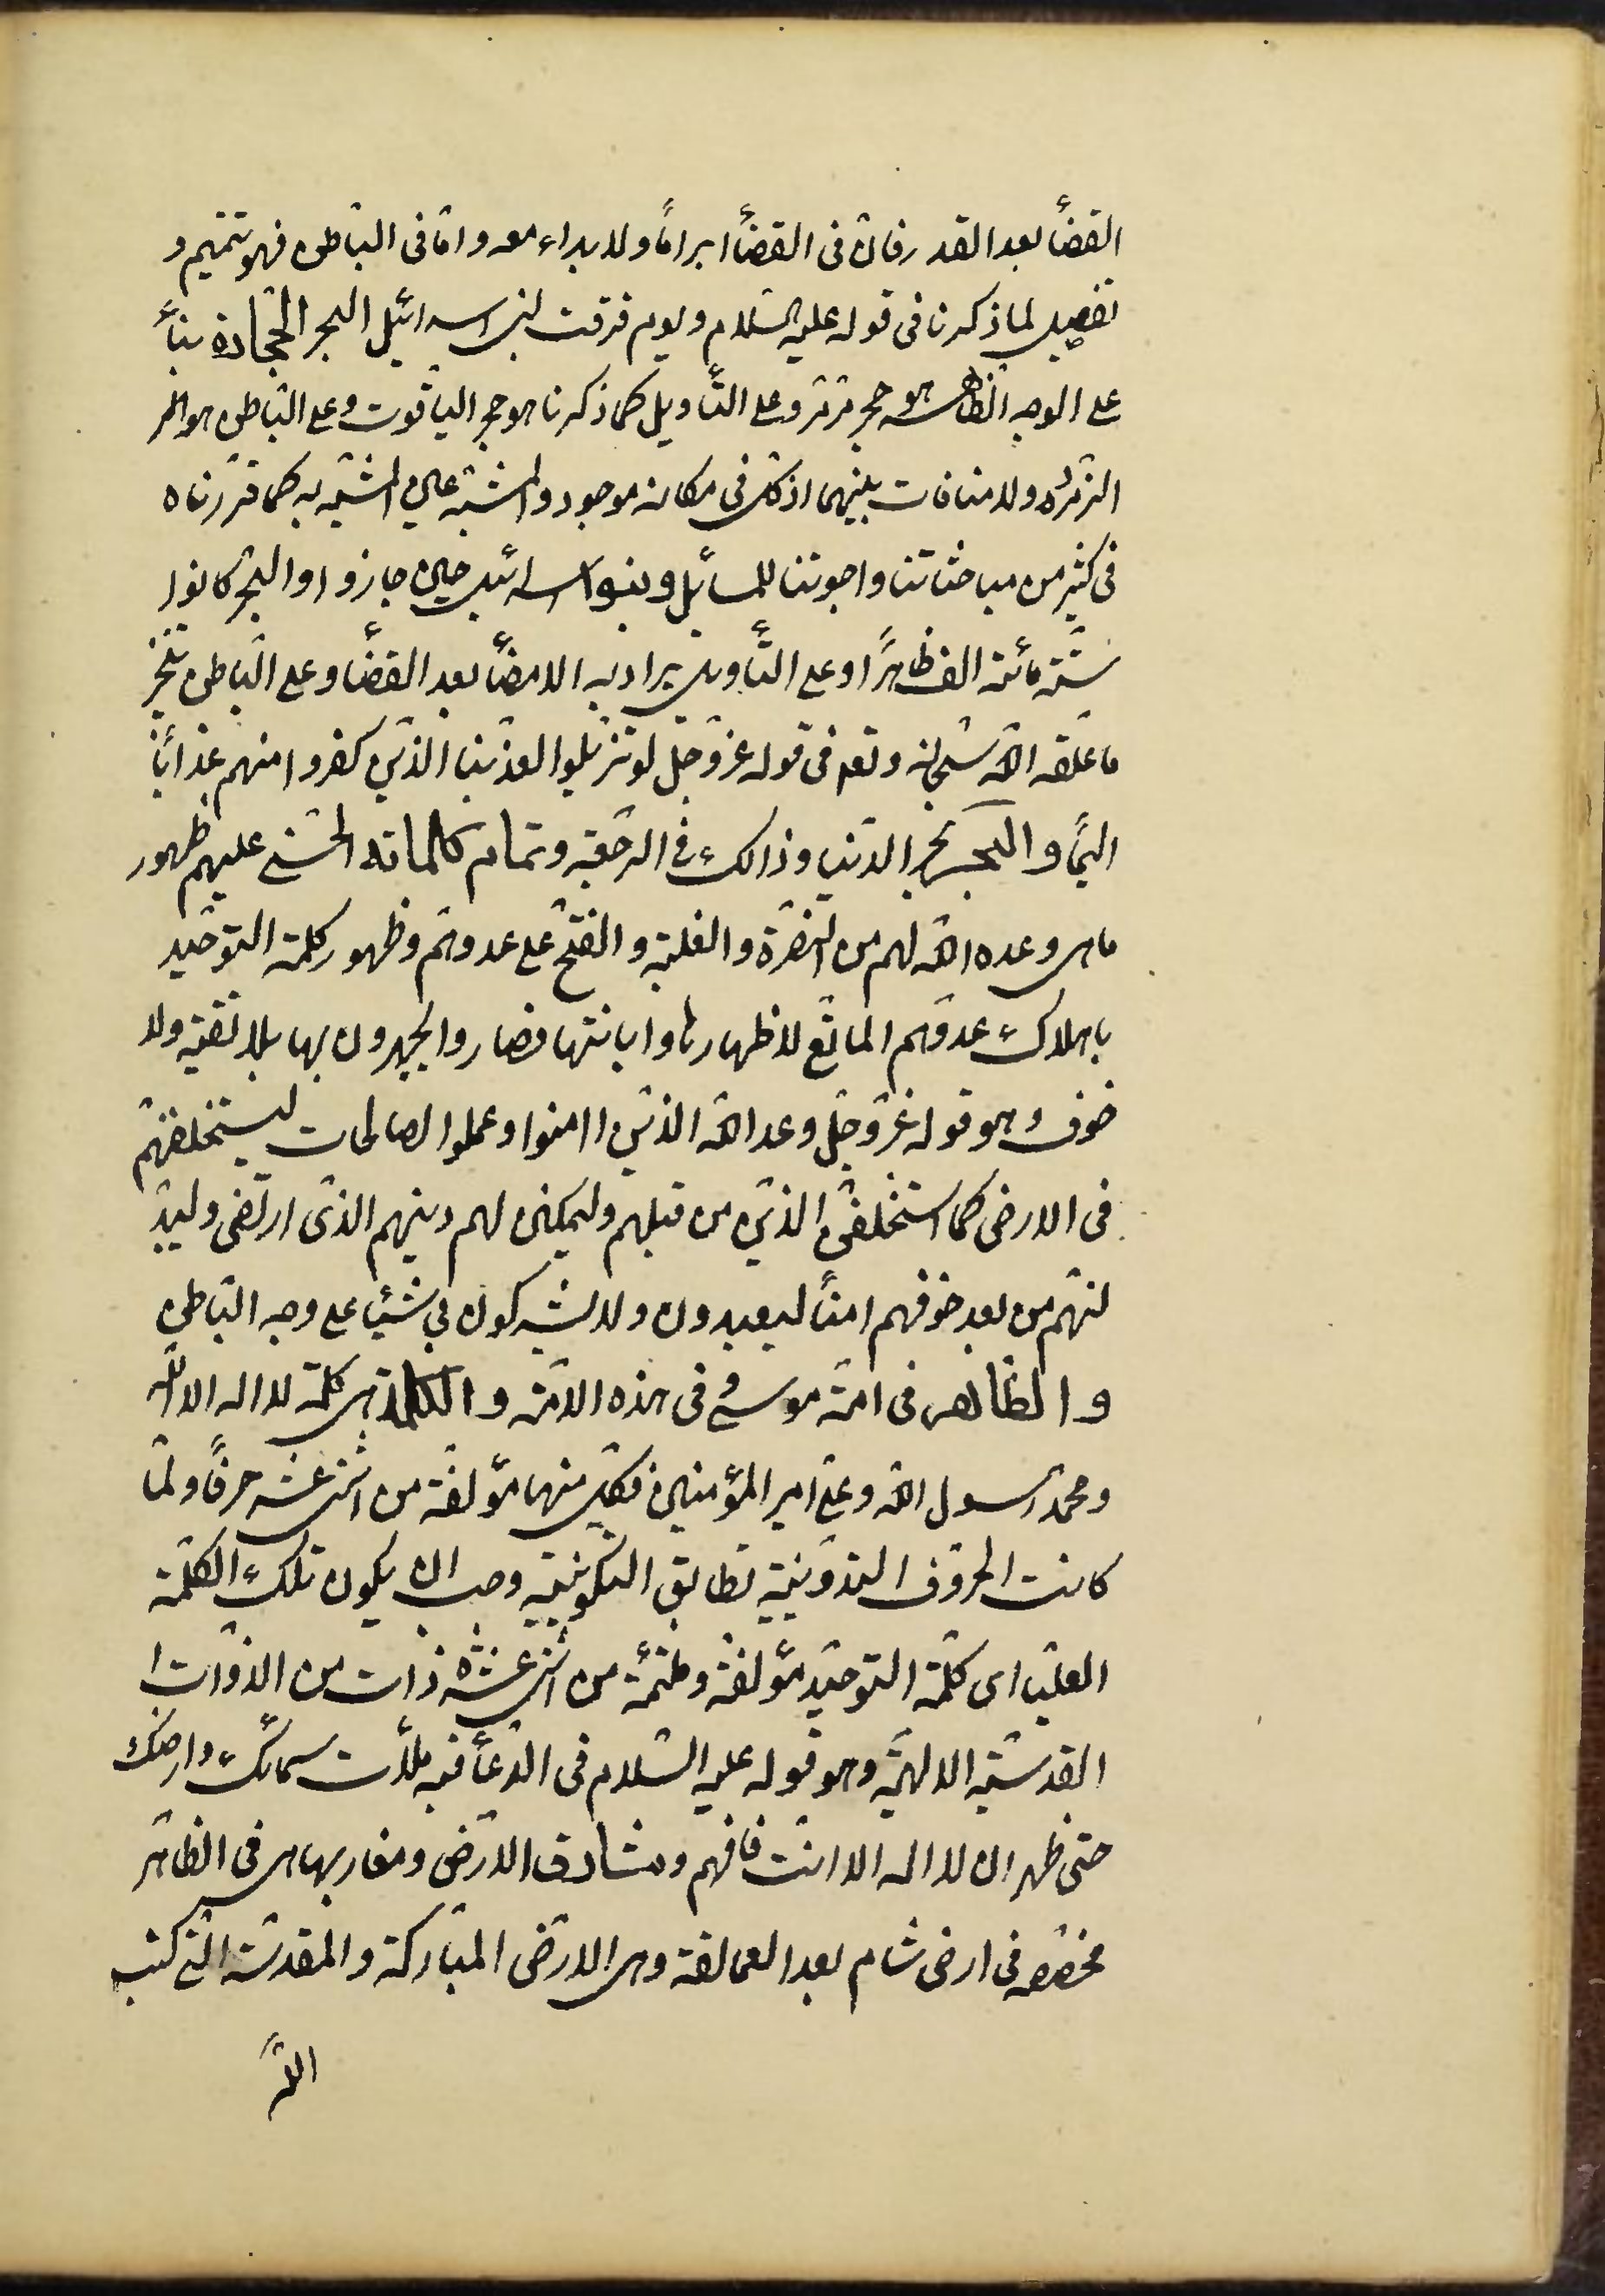 القضأ بعد القدر فان فى القضأ ابراماً ولا بداء معه واما فى الباطن فهو تتميم و
تفصيل لما ذكرنا فى قوله عليه السلام ويوم فرقت لبنى اسرائيل البحر الحجارة بنأ
على الوجه الظاهر هو حجر مرمر وعلى التأويل كما ذكرنا هو حجر الياقوت وعلى الباطن هو الحجر
الزمرد ولا منافات بينهما اذ كل فى مكانه موجود والمشبه عين المشبه به كما قررناه
فى كثير من مباحثاتنا واجوبتنا للمسائل وبنو اسرائيل حين جازوا والبحر كانوا
ستة مائة الف ظاهراً وعلى التأويل يراد به الامضأ بعد القضأ وعلى الباطن تنجز
ما علقه الله سبحانه وتعه فى قوله عز وجل لو تزيلوا لعذبنا الذين كفروا منهم عذاباً
اليماً والبحر بحر الدنيا وذالك فى الرجعة وتمام كلماته الحسنى عليهم ظهور
ما هى وعده الله لهم من النصرة والغلبة والفتح على عدوهم وظهور كلمة التوحيد
باهلاك عدوهم المانع لاظهارها وابانتها فصاروا يجهرون بها بلا تقية ولا
خوف وهو قوله عز وجل وعد الله الذين اامنوا وعملوا الصالحات ليستخلفنهم
فى الارض كما استخلف الذين من قبلهم وليمكنن لهم دينهم الذى ارتضى وليبد
لنهم من بعد خوفهم امناً ليعبدون ولا يشركون بى شيئا على وجه الباطن
والظاهر فى امة موسى وفى هذه الامة والكلمة هى كلمة لا اله الا الله
ومحمد رسول الله وعلى امير المؤمنين فكل منها مؤلفة من اثنى عشر حرفاً ولما
كانت الحروف التدوينية تطابق التكوينية وجب ان يكون تلك الكلمة
العليا اى كلمة التوحيد مؤلفة وملتئمة من اثنى عشرة ذات من الذوات ا
القدسية الالهية وهو قوله عليه السلام فى الدعأ فبهم ملأت سمائك وارضك
حتى ظهر ان لا اله الا انت فافهم ومشارق الارض ومغاربها هى فى الظاهر
مختصه فى ارض شام بعد العمالقة وهى الارض المباركة والمقدسة التى كتب
الله